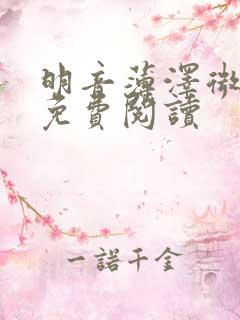 明音薄澤微
免費閱讀
一諾千金